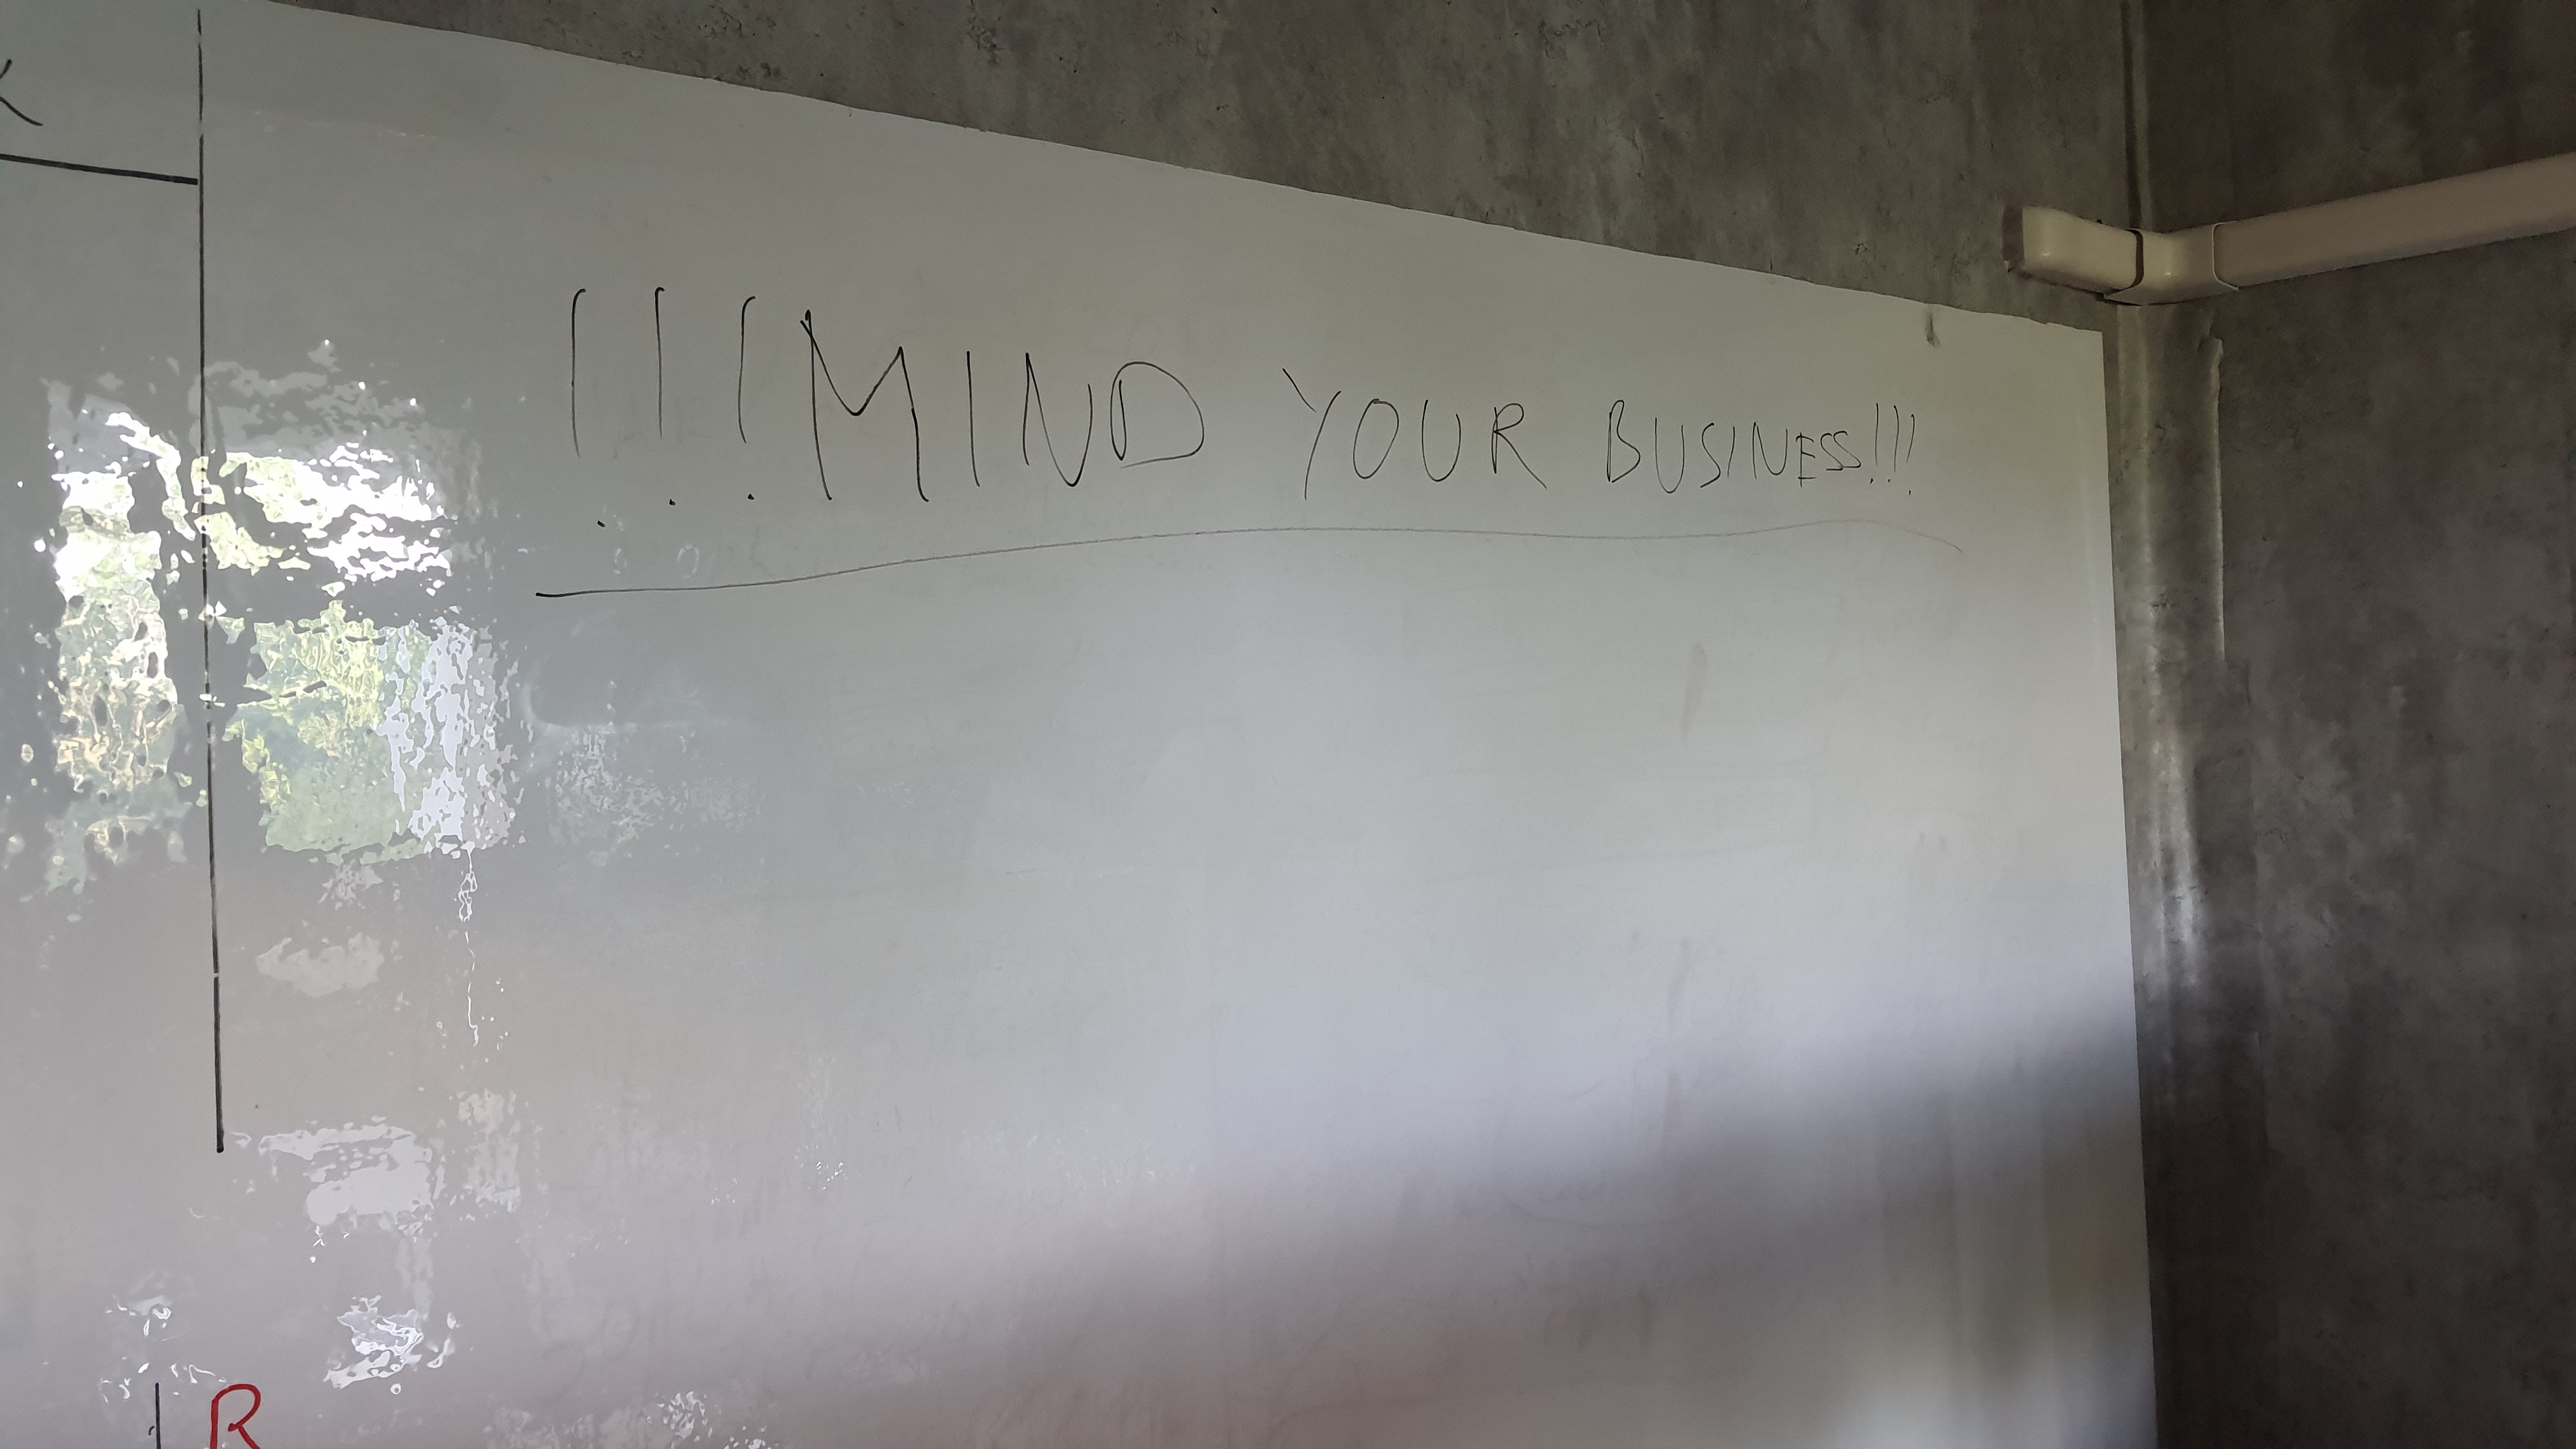 !!!MIND YOUR BUSINESS!!!
R